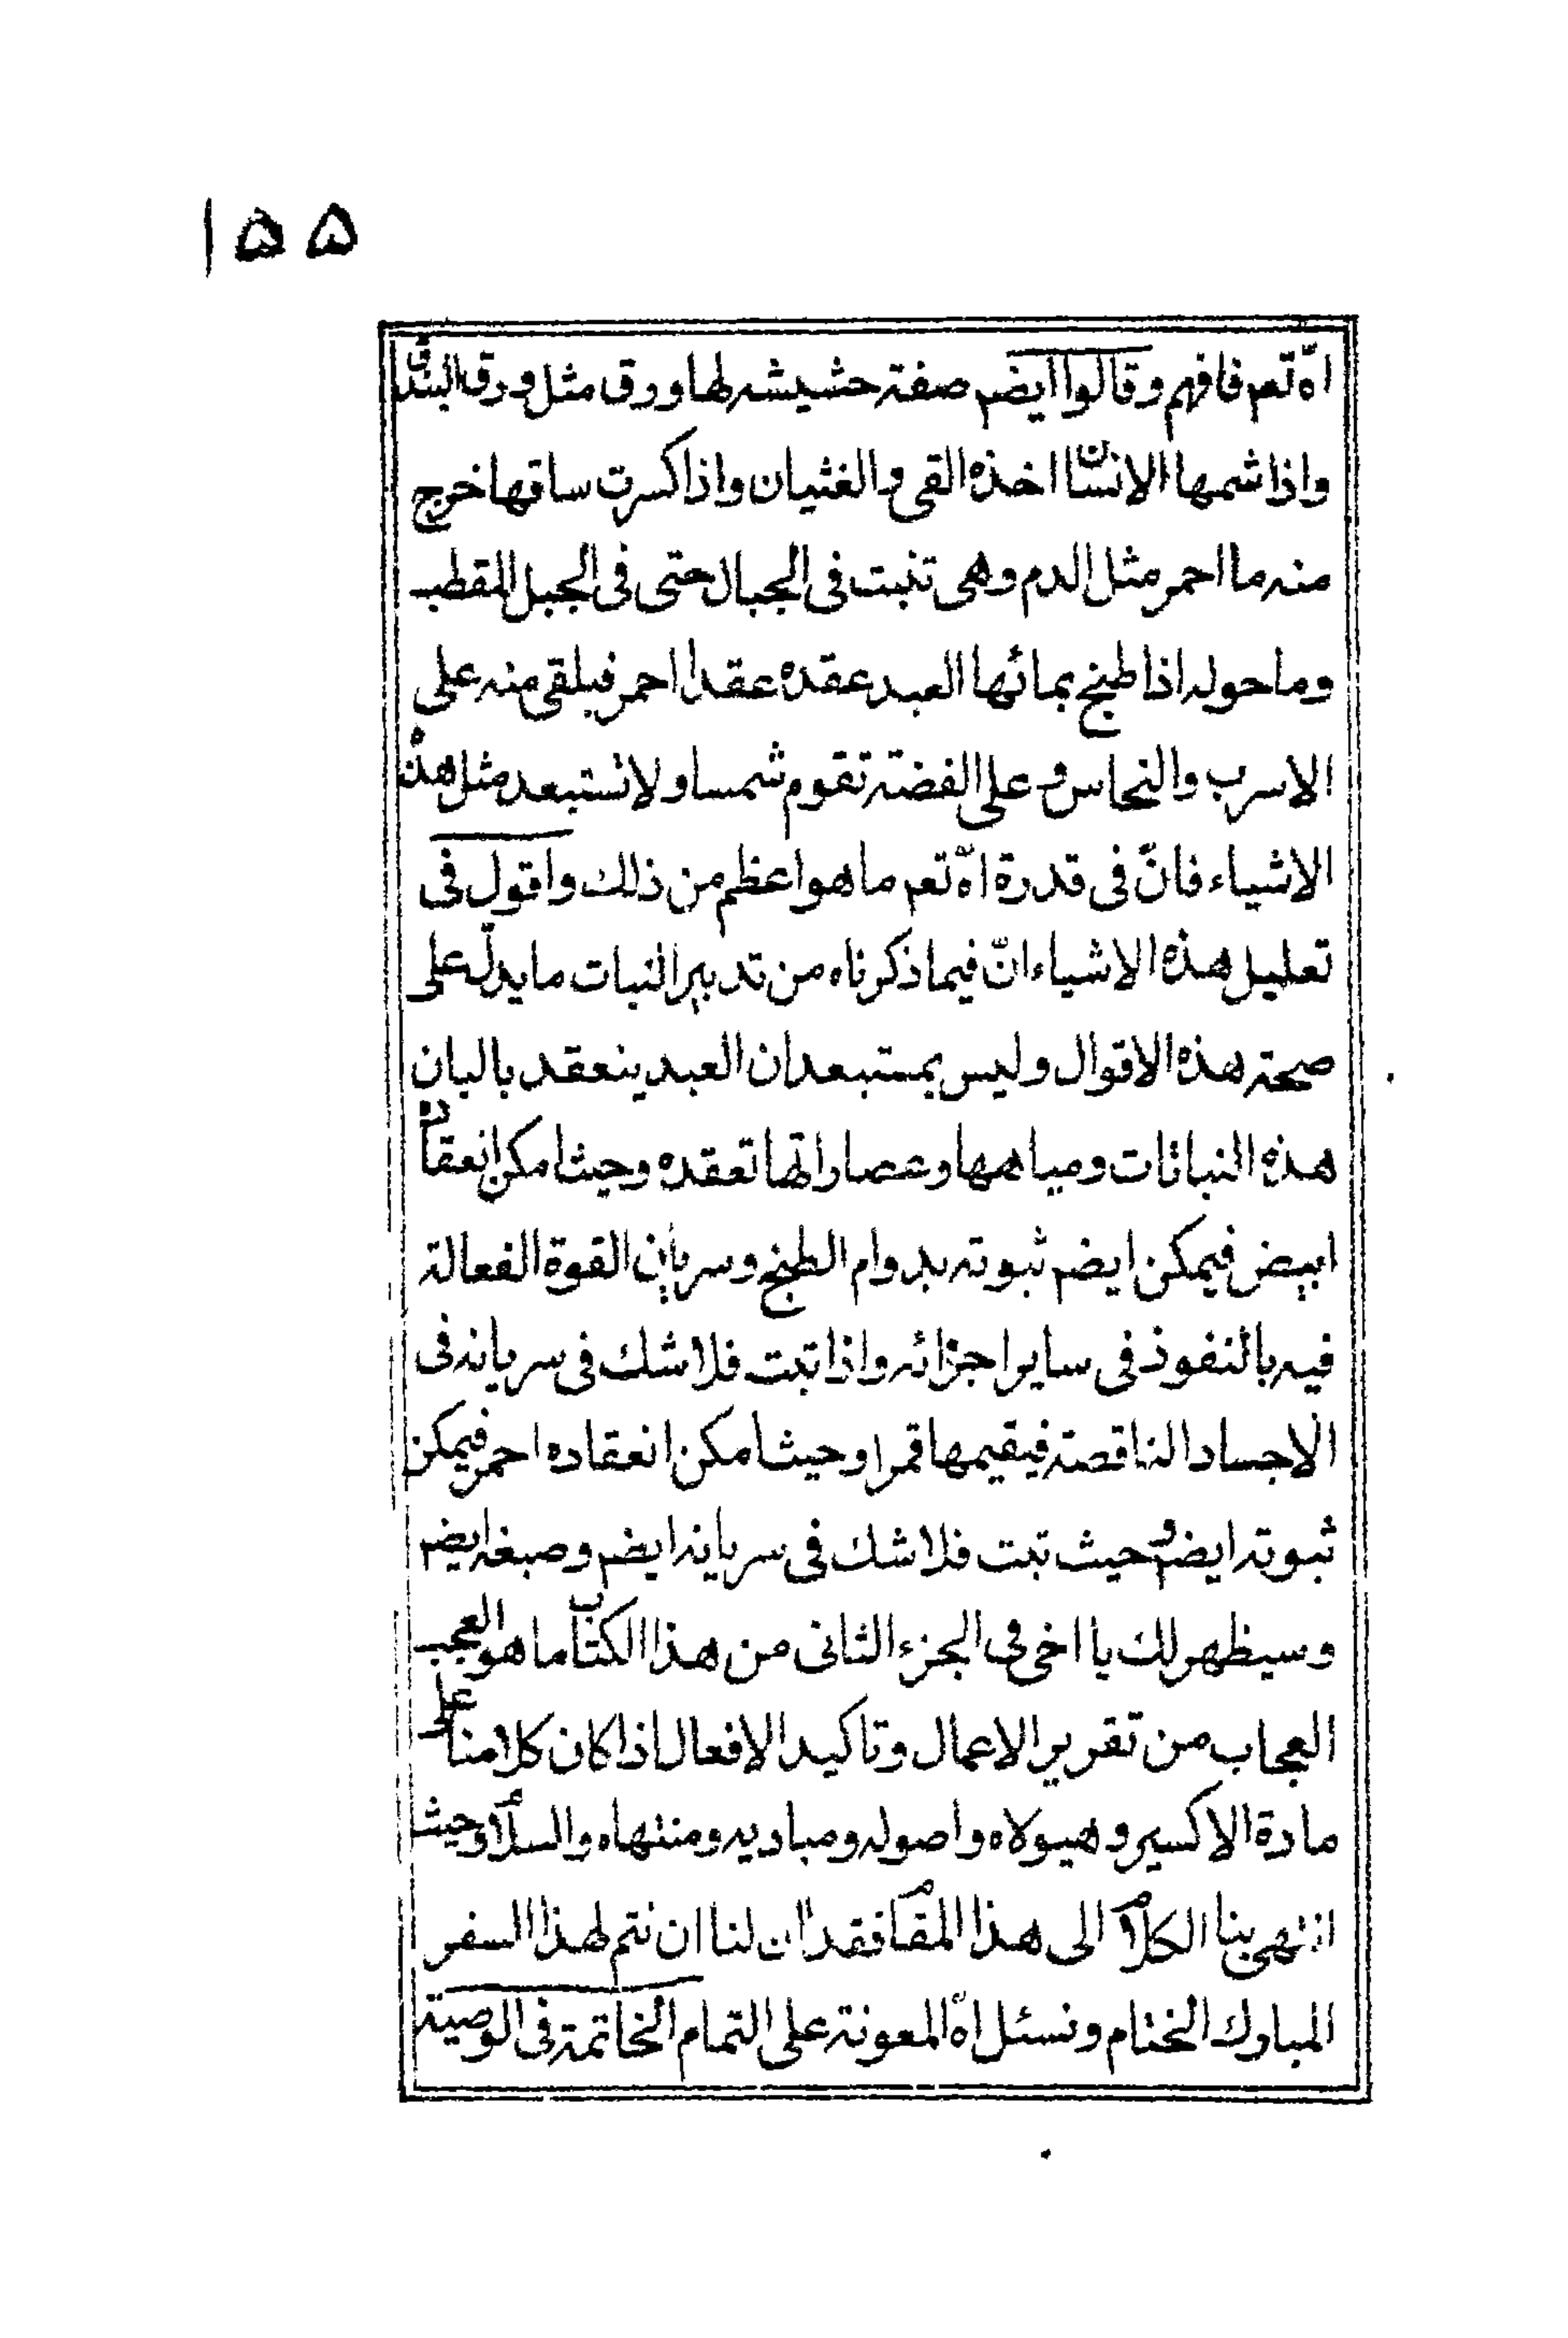 ١٥٥
الله تعم فافهم وقالوا ايضم صفة حشيشه لها ورق مثل ورق البندق
واذا شمها الانسان اخذه القى والغثيان واذا كسرت ساقها خرج
منه ما احمر مثل الدم وهى تنبت فى الجبال حتى فى الجبل المقطب
وما حوله اذا طبخ بمائها العبد عقده عقدا احمر فيلقى منه على
الاسرب والنحاس و على الفضة تقوم شمسا ولا تستبعد مثل هذه
الاشياء فانّ فى قدرة الله تعم ما هو اعظم من ذلك واقول فى
تعليل هذه الاشياء انّ فيما ذكرناه من تدبير النبات ما يدلّ على
صحة هذه الاقوال وليس بمستبعد ان العبد ينعقد بالبان
هذه النباتات ومياهها وعصاراتها تعقده وحيث امكن انعقاده
ابيض فيمكن ايضم ثبوته بدوام الطبخ وسريان القوة الفعالة
فيه بالنفوذ فى ساير اجزائه واذا تبت فلا شك فى سريانه فى
الاجساد الناقصة فيقيمها قمرا وحيث امكن انعقاده احمر فيمكن
ثبوته ايضم و حيث تبت فلا شك فى سريانه ايضم وصبغه ايضم
وسيظهر لك يا اخى فى الجزء الثانى من هذا الكتاب ما هو العجب
العجاب من تقرير الاعمال وتاكيد الافعال اذا كان كلامنا على
مادة الاكسير وهيولاه واصوله ومباديه ومنتهاه والسلام وحيث
انتهى بنا الكلام الى هذا المقام فقد ان لنا ان نتم لهذا السفر
المبارك الختام ونسئل الله المعونة على التمام الخاتمة فى الوصية